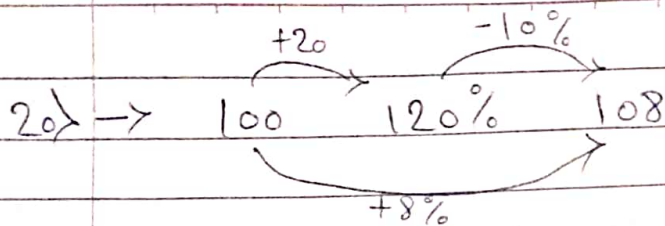 +20 -10%
20> → 100 120% 108
+8%